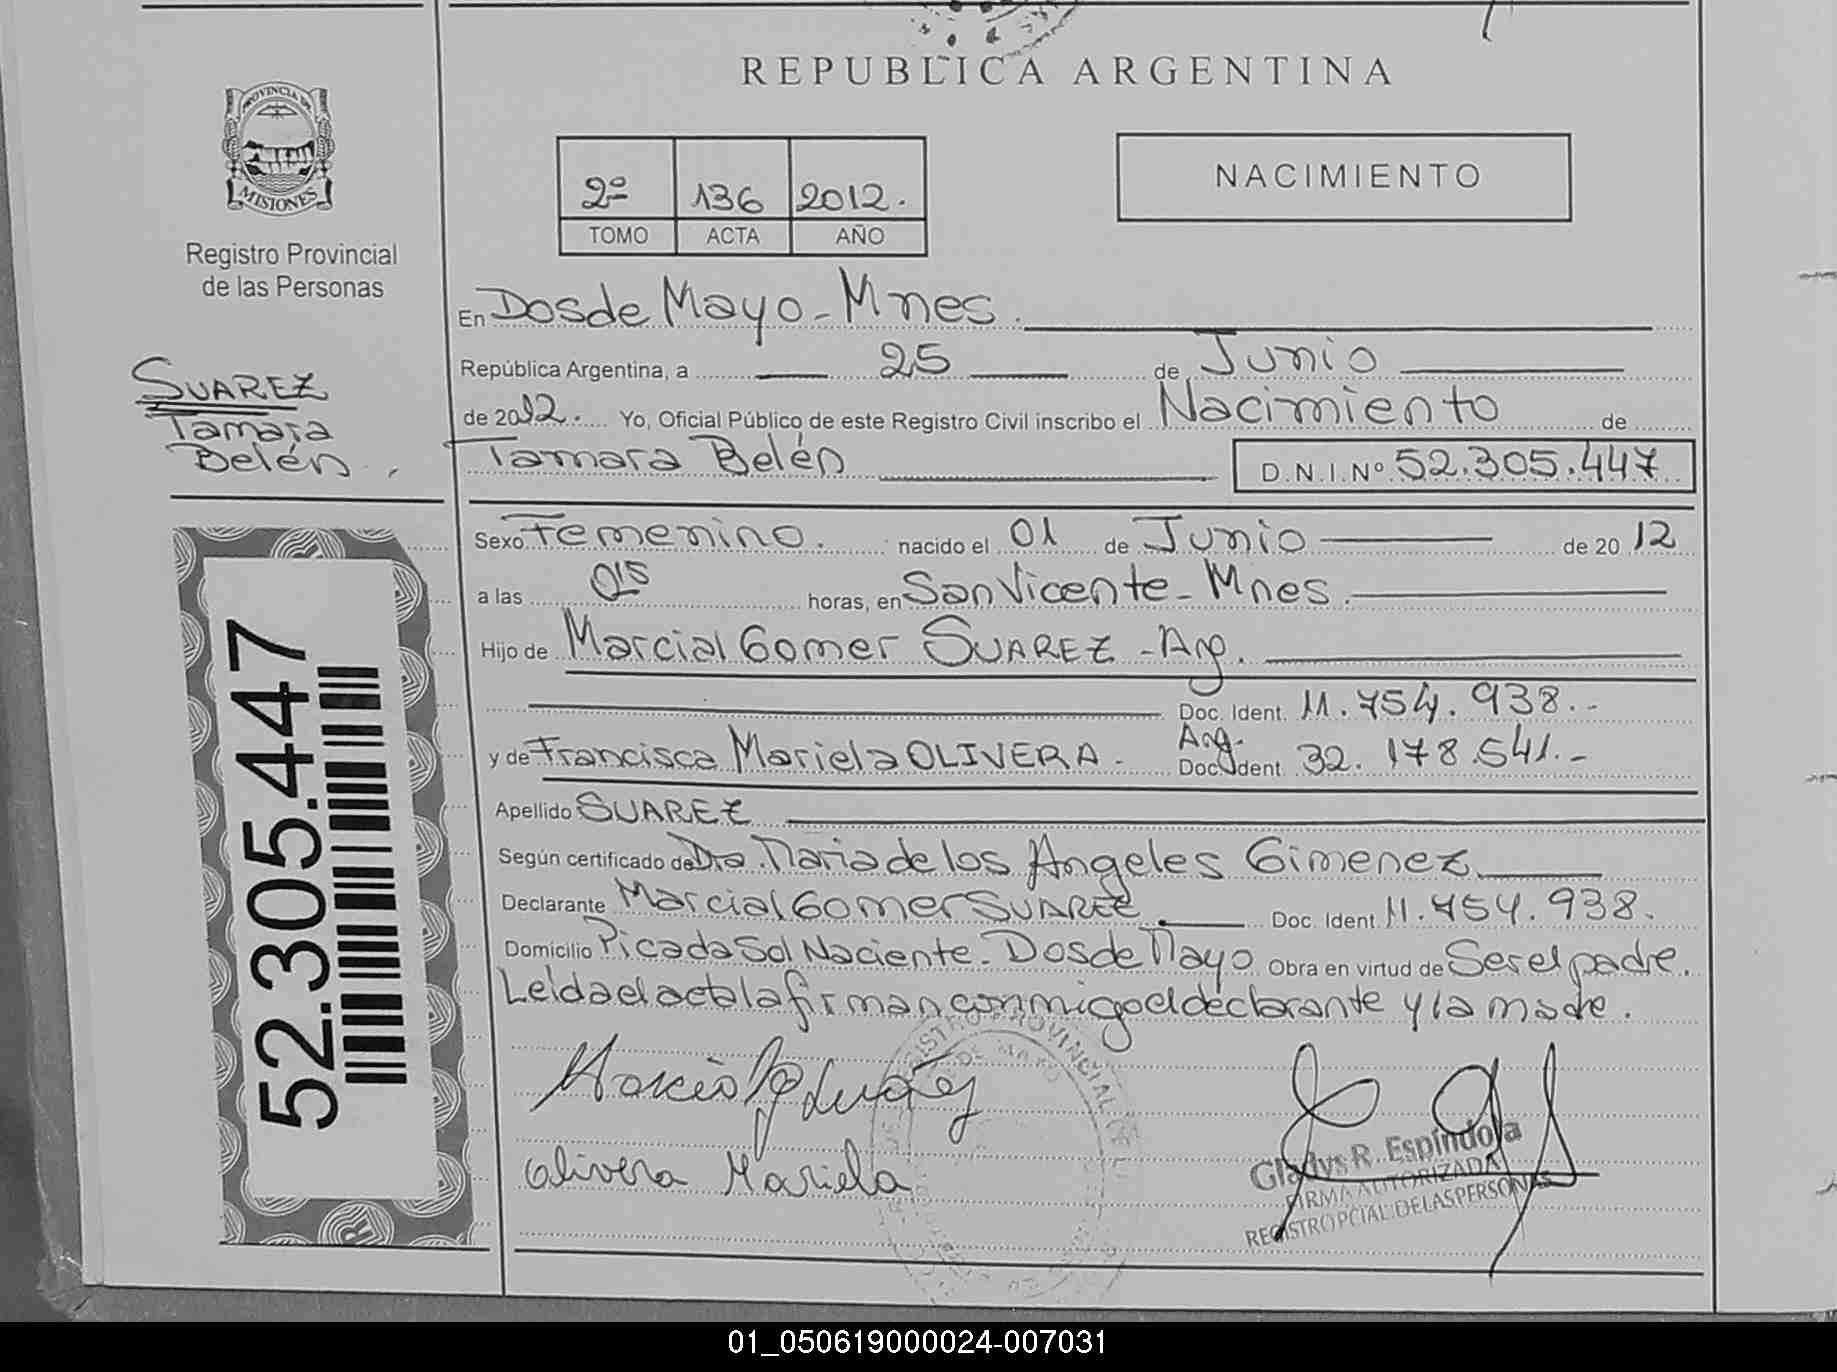 REPUBLICA ARGENTINA
PROVINCIA DE
MISIONES
Registro Provincial
de las Personas
2º 136 2012.
TOMO ACTA AÑO
NACIMIENTO
En Dos de Mayo - Mnes.
República Argentina, a 25 de Junio
de 2012. Yo, Oficial Público de este Registro Civil inscribo el Nacimiento de
Tamara Belén D.N.I.Nº 52.305.447
SUAREZ
Tamara
Belén.
52.305.447
Sexo Femenino. nacido el 01 de Junio de 20 12
a las 015 horas, en San Vicente - Mnes.
Hijo de Marcial Gomer SUAREZ - Arg.
Doc. Ident. 11.754.938.-
y de Francisca Mariela OLIVERA. Arg. Doc. Ident 32.178.541.-
Apellido SUAREZ
Según certificado de Dra. Maria de los Angeles Gimenez
Declarante Marcial Gomer SUAREZ Doc. Ident 11.754.938.
Domicilio Picada Sol Naciente - Dos de Mayo Obra en virtud de Ser el padre.
Leída el acta la firman conmigo el declarante y la madre.
Olivera Mariela
REGISTRO PROVINCIAL DE
DOS DE MAYO
Gladys R. Espíndola
FIRMA AUTORIZADA
REGISTRO PCIAL. DE LAS PERSONAS
01_050619000024-007031